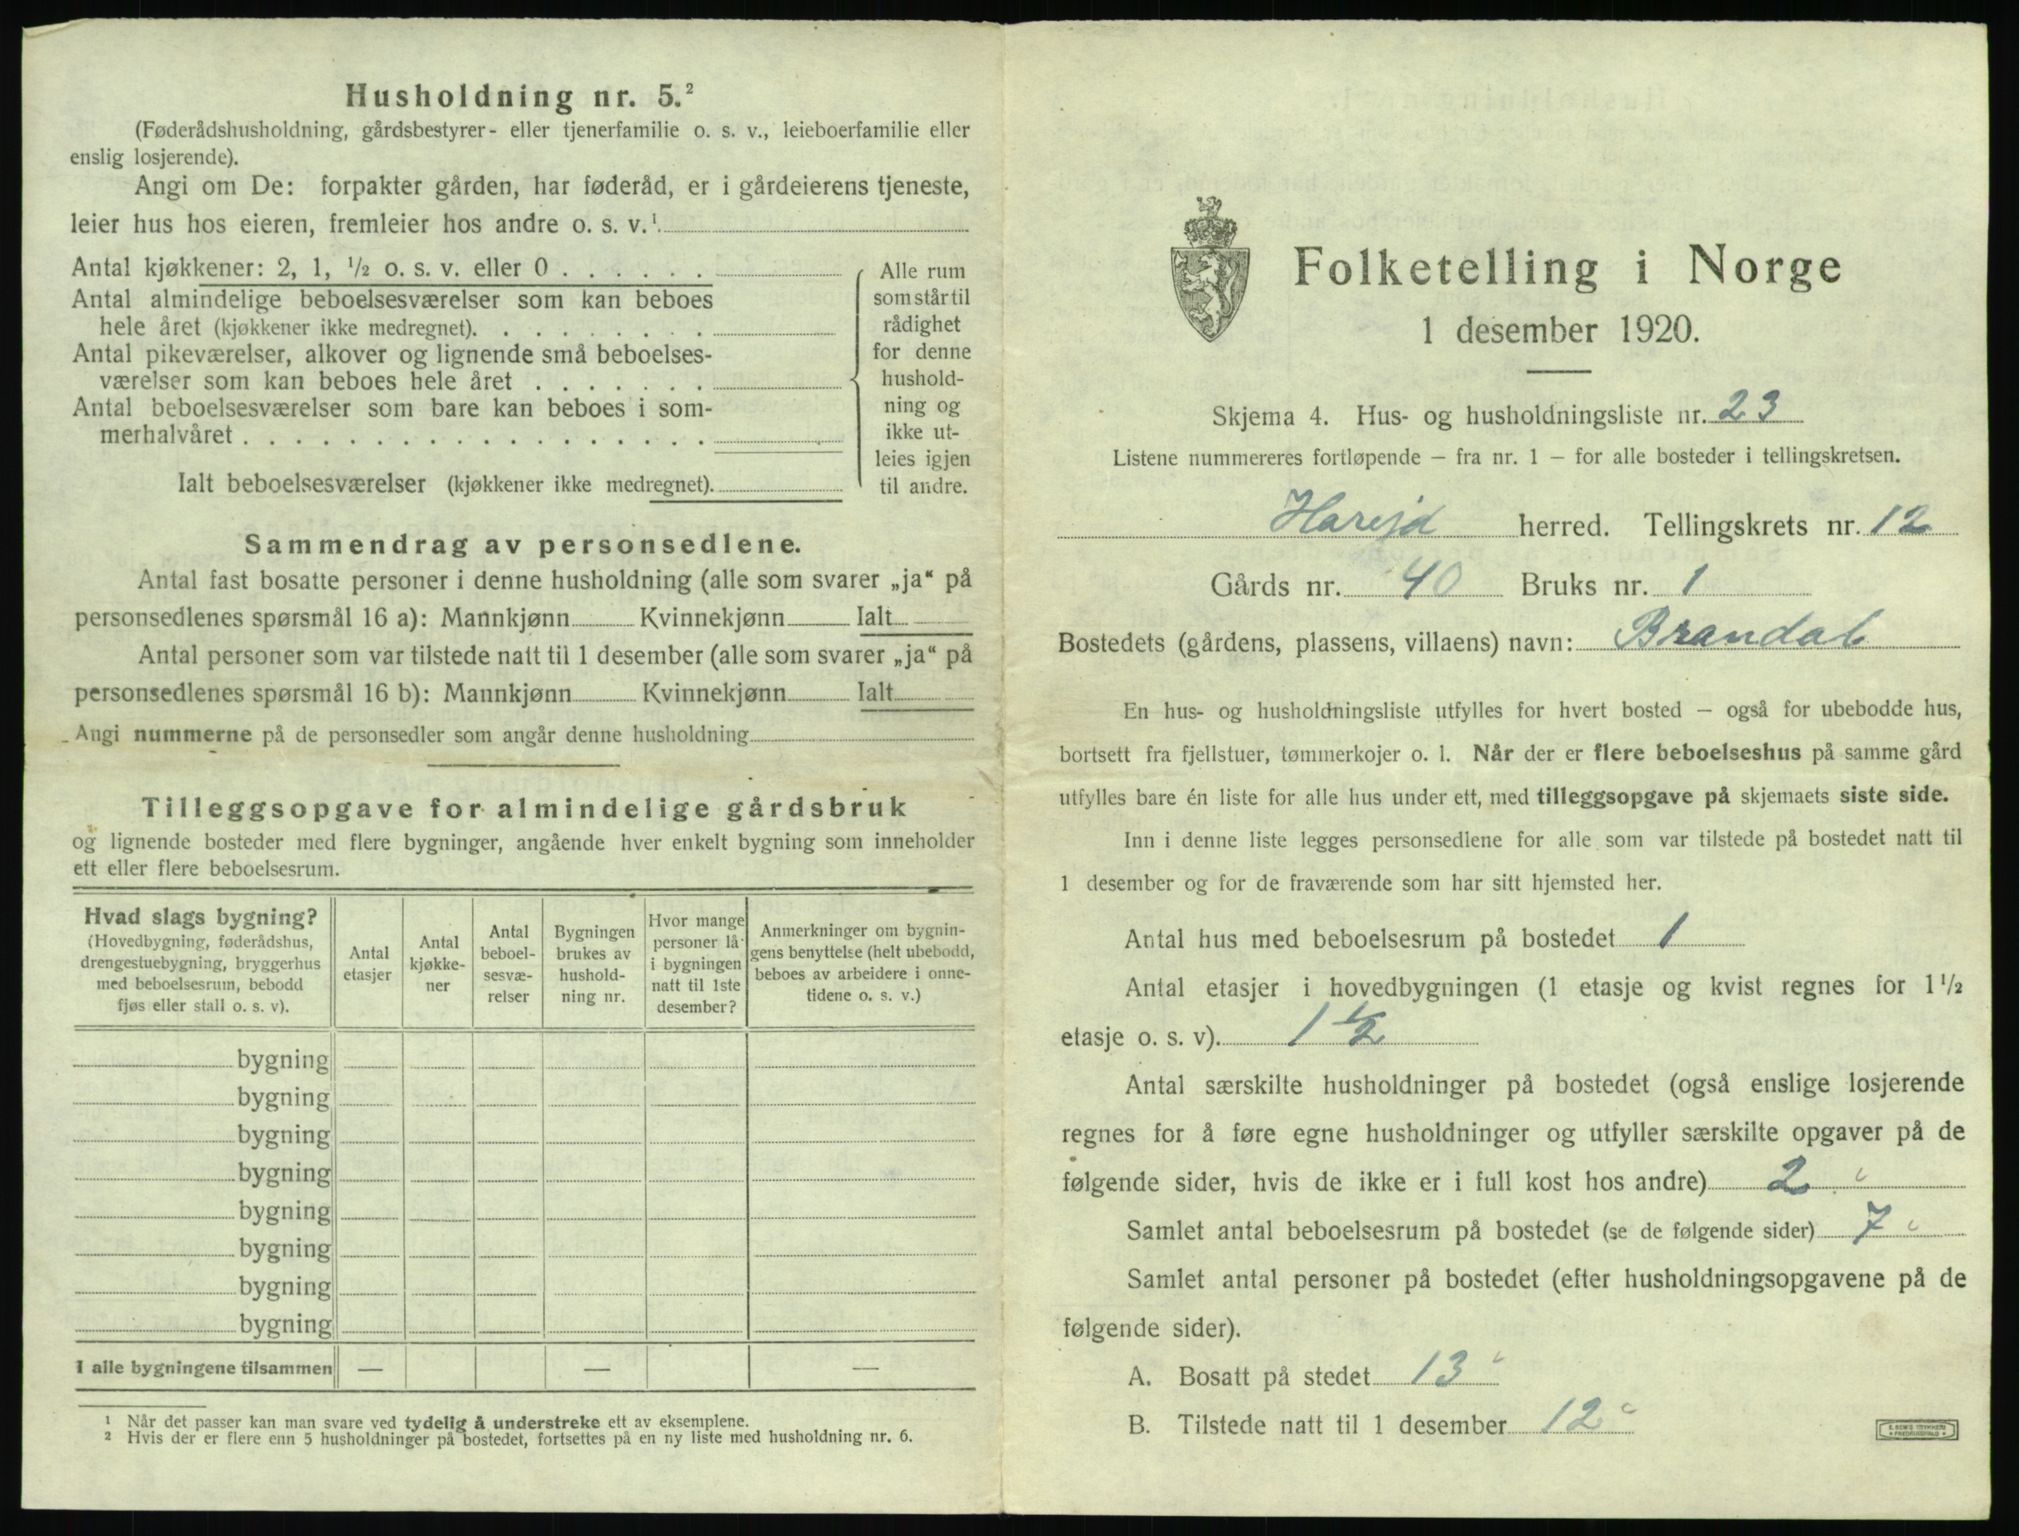 Husholdning nr. 5.²
(Føderådshusholdning, gårdsbestyrer- eller tjenerfamilie o. s. v., leieboerfamilie eller
enslig losjerende).
Angi om De: forpakter gården, har føderåd, er i gårdeierens tjeneste,
leier hus hos eieren, fremleier hos andre o. s. v.¹
Antal kjøkkener: 2, 1, ½ o. s. v. eller 0 . . . . . .
Antal almindelige beboelsesværelser som kan beboes
hele året (kjøkkener ikke medregnet). . . . . . . . .
Antal pikeværelser, alkover og lignende små beboelses-
værelser som kan beboes hele året . . . . . . .
Antal beboelsesværelser som bare kan beboes i som-
merhalvåret . . . . . . . . . . . . . . . . . .
Ialt beboelsesværelser (kjøkkener ikke medregnet).
Alle rum
som står til
rådighet
for denne
hushold-
ning og
ikke ut-
leies igjen
til andre.
Sammendrag av personsedlene.
Antal fast bosatte personer i denne husholdning (alle som svarer „ja“ på
personsedlenes spørsmål 16 a): Mannkjønn Kvinnekjønn Ialt
Antal personer som var tilstede natt til 1 desember (alle som svarer „ja“ på
personsedlenes spørsmål 16 b): Mannkjønn Kvinnekjønn Ialt
Angi nummerne på de personsedler som angår denne husholdning
Tilleggsopgave for almindelige gårdsbruk
og lignende bosteder med flere bygninger, angående hver enkelt bygning som inneholder
ett eller flere beboelsesrum.
Hvad slags bygning?
(Hovedbygning, føderådshus,
drengestuebygning, bryggerhus
med beboelsesrum, bebodd
fjøs eller stall o. s. v).
Antal
etasjer
Antal
kjøkke-
ner
Antal
beboel-
sesvæ-
relser
Bygningen
brukes av
hushold-
ning nr.
Hvor mange
personer lå
i bygningen
natt til 1ste
desember?
Anmerkninger om bygnin-
gens benyttelse (helt ubebodd,
beboes av arbeidere i onne-
tidene o. s. v.)
bygning
bygning
bygning
bygning
bygning
bygning
bygning
bygning
I alle bygningene tilsammen — — —
¹ Når det passer kan man svare ved tydelig å understreke ett av eksemplene.
² Hvis der er flere enn 5 husholdninger på bostedet, fortsettes på en ny liste med husholdning nr. 6.
Folketelling i Norge
1 desember 1920.
Skjema 4. Hus- og husholdningsliste nr. 23
Listene nummereres fortløpende — fra nr. 1 — for alle bosteder i tellingskretsen.
Hareid herred. Tellingskrets nr. 12
Gårds nr. 40 Bruks nr. 1
Bostedets (gårdens, plassens, villaens) navn: Brandal
En hus- og husholdningsliste utfylles for hvert bosted — også for ubebodde hus,
bortsett fra fjellstuer, tømmerkojer o. l. Når der er flere beboelseshus på samme gård
utfylles bare én liste for alle hus under ett, med tilleggsopgave på skjemaets siste side.
Inn i denne liste legges personsedlene for alle som var tilstede på bostedet natt til
1 desember og for de fraværende som har sitt hjemsted her.
Antal hus med beboelsesrum på bostedet 1
Antal etasjer i hovedbygningen (1 etasje og kvist regnes for 1½
etasje o. s. v). 1½
Antal særskilte husholdninger på bostedet (også enslige losjerende
regnes for å føre egne husholdninger og utfyller særskilte opgaver på de
følgende sider, hvis de ikke er i full kost hos andre) 2
Samlet antal beboelsesrum på bostedet (se de følgende sider) 7
Samlet antal personer på bostedet (efter husholdningsopgavene på de
følgende sider).
A. Bosatt på stedet 13
B. Tilstede natt til 1 desember 12